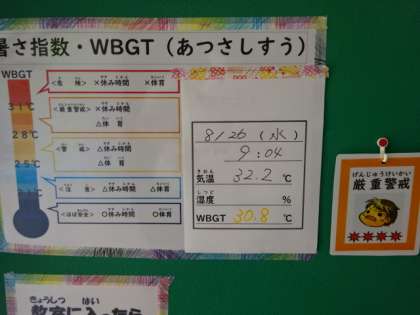 暑さ指数・WBGT(あつさしすう)
WBGT
<危 険> ×休み時間 ×体育
31℃
<厳重警戒> ×休み時間
△体 育
28℃
<警 戒> △休み時間
△体 育
25℃
<注 意> △休み時間 △体育
<ほぼ安全> ○休み時間 ○体育
8/26 (水)
9:04
きおん
気温 32.2 ℃
しつど
湿度 %
WBGT 30.8 ℃
げんじゅうけいかい
厳重警戒
きょうしつ はい
教室に入ったら